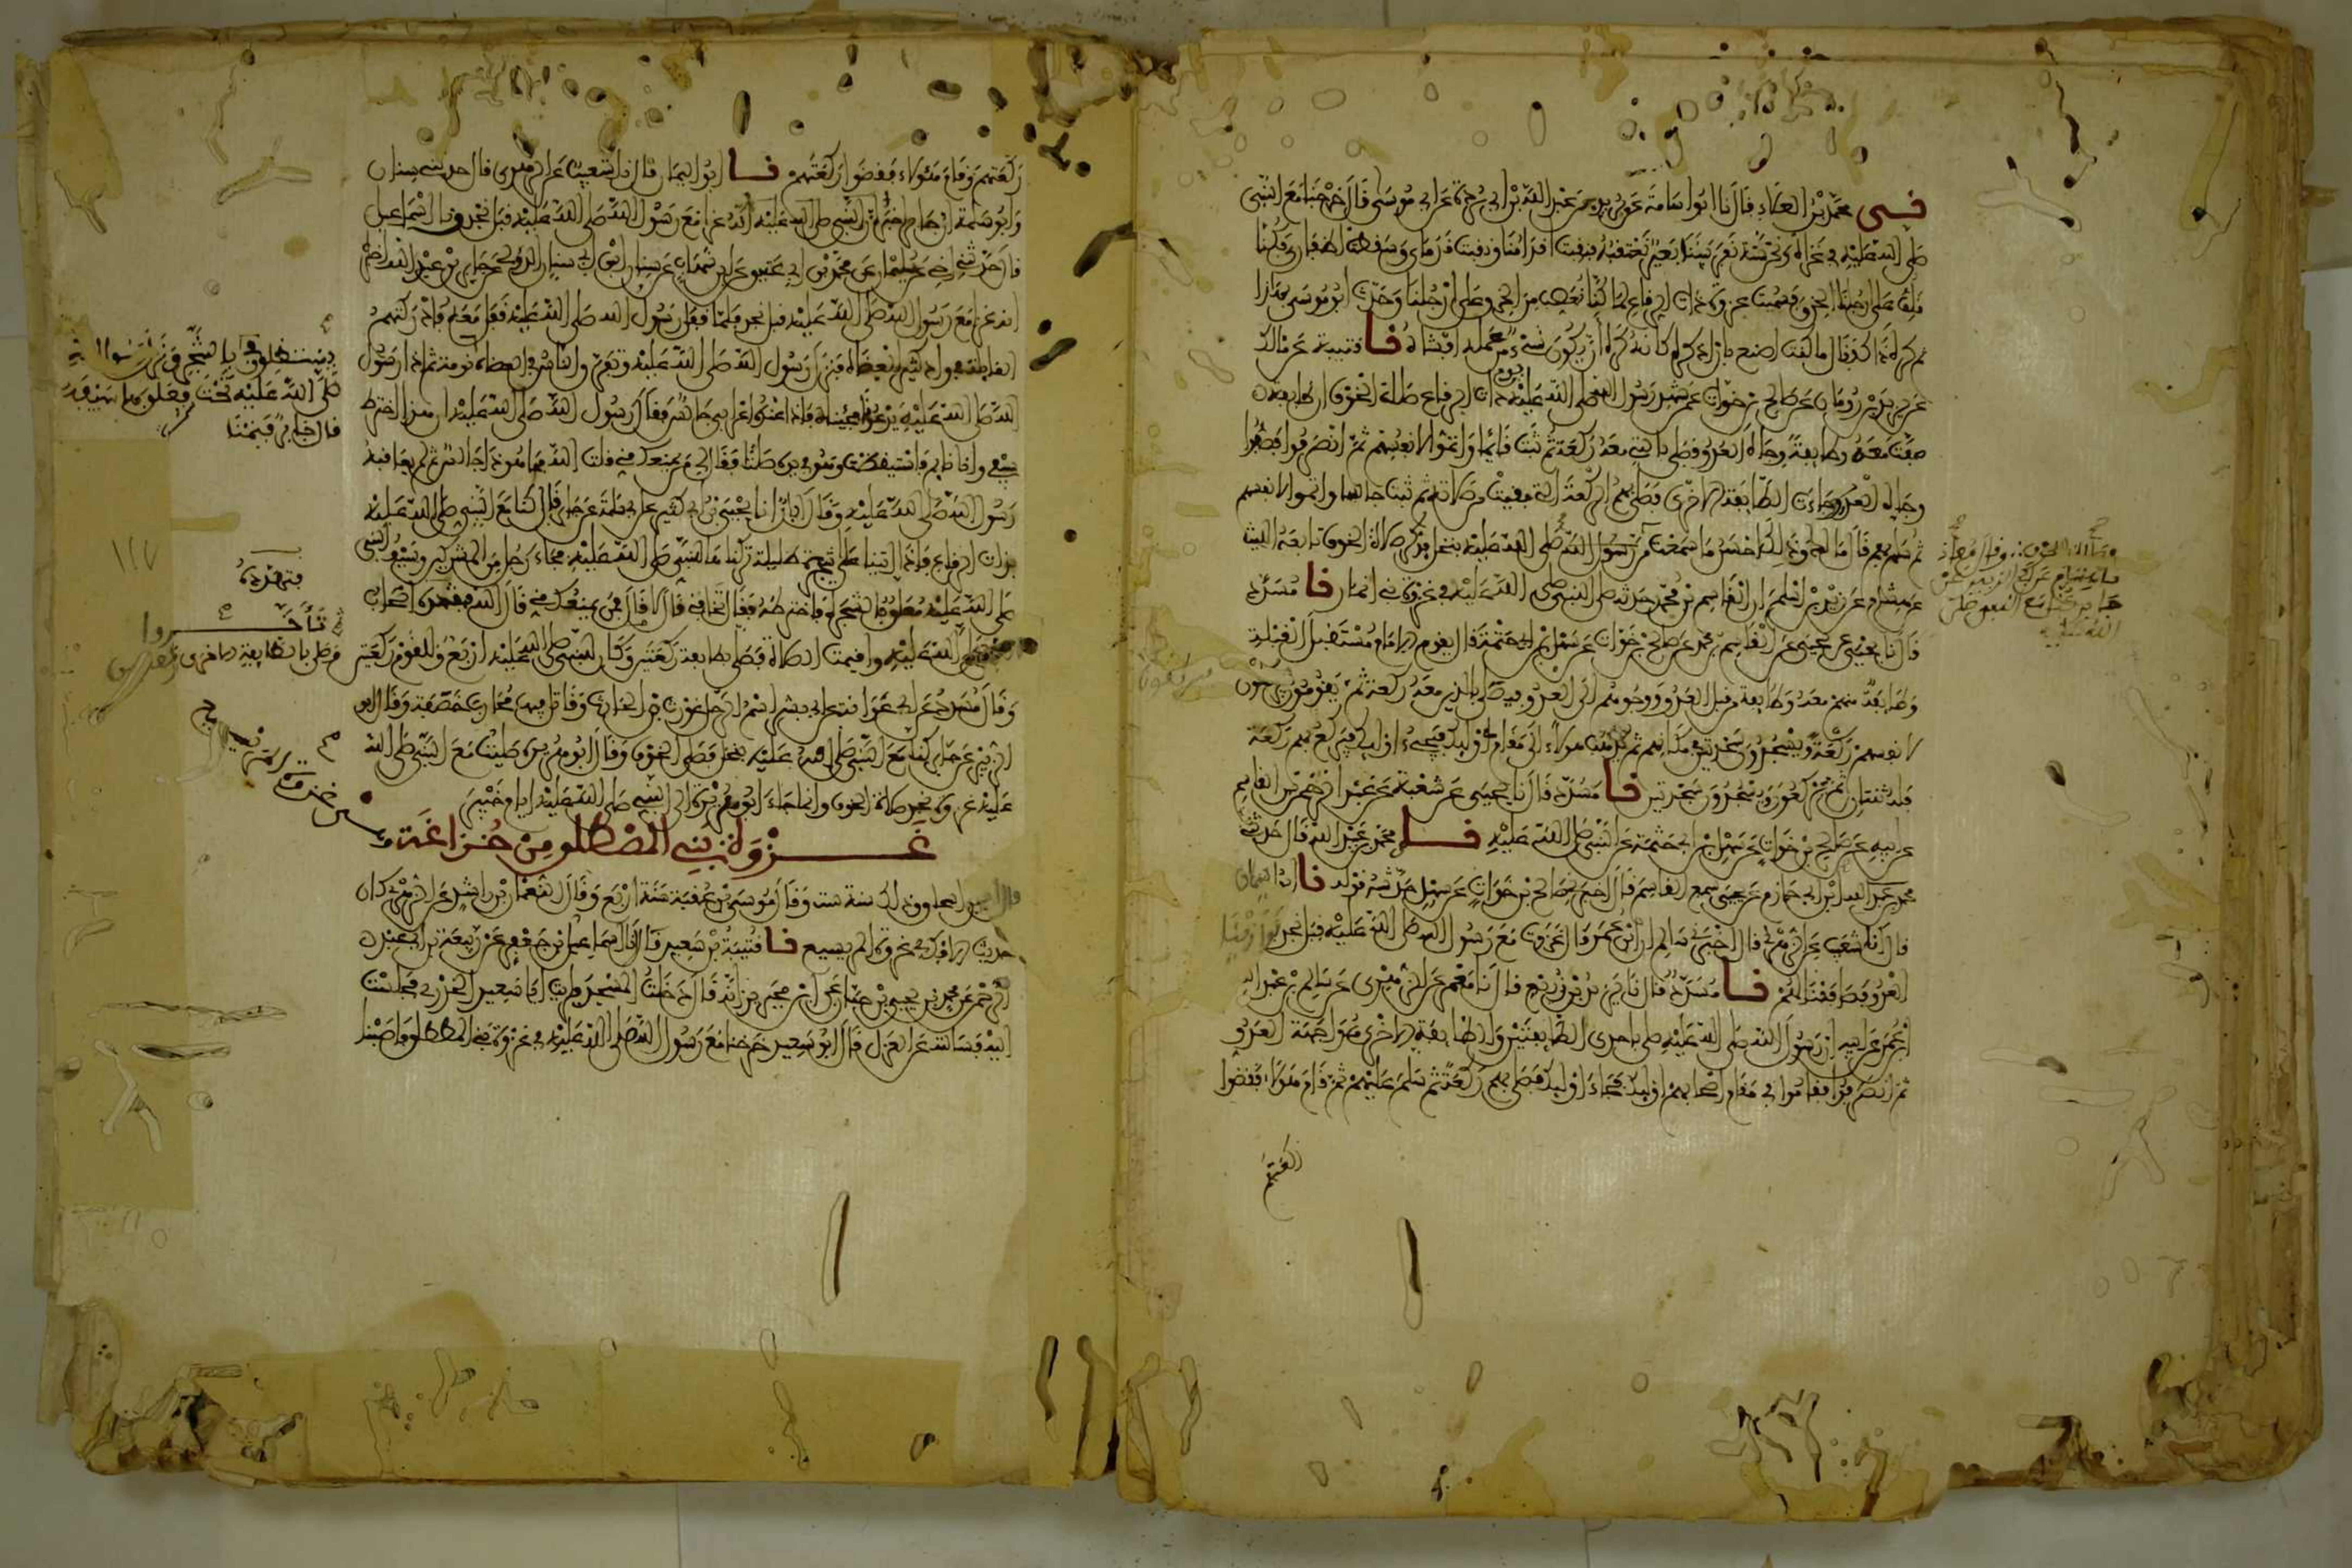 ني محمد بن العلاء قال نا ابو اسامة عن بريد بن عبد الله بن ابي بردة عن ابي موسى قال خرجنا مع النبي
صلى الله عليه في غزاة ونحن ستة نفر بيننا بعير نعتقبه فنقبت اقدامنا ونقبت قدماي وسقطت اظفاري وكنا
نلف على ارجلنا الخرق فسميت غزوة ذات الرقاع لما كنا نعصب من الخرق على ارجلنا وحدث ابو موسى بهذا
ثم كره ذاك فقال ما كنت اصنع بان اذكره كانه كره ان يكون شيء من عمله افشاه نا قتيبة عن مالك
عن يزيد بن رومان عن صالح بن خوات عمن شهد رسول الله صلى الله عليه يوم ذات الرقاع صلاة الخوف ان طايفة
صفت معه وطايفة وجاه العدو فصلى بالتي معه ركعة ثم ثبت قائما واتموا لانفسهم ثم انصرفوا فصفوا
وجاه العدو وجاءت الطايفة الاخرى فصلى بهم الركعة التي بقيت من صلاته ثم ثبت جالسا واتموا لانفسهم
ثم سلم بهم قال مالك وذلك احسن ما سمعت في صلاة الخوف تابعه الليث
عن هشام عن زيد بن اسلم ان القاسم بن محمد حدثه صلى النبي صلى الله عليه في غزوة بني انمار نا مسدد
قال نا يحيى عن يحيى عن القاسم بن محمد عن صالح بن خوات عن سهل بن ابي حثمة قال يقوم الامام مستقبل القبلة
وطايفة منهم معه وطايفة من قبل العدو ووجوههم الى العدو فيصلي بالذين معه ركعة ثم يقومون فيركعون
لانفسهم ركعة ويسجدون سجدتين في مكانهم ثم يذهب هؤلاء الى مقام اوليك فيجيء اوليك فيركع بهم ركعة
فله ثنتان ثم يركعون ويسجدون سجدتين نا مسدد قال نا يحيى عن شعبة عن عبد الرحمن بن القاسم
عن ابيه عن صالح بن خوات عن سهل بن ابي حثمة عن النبي صلى الله عليه نا محمد بن عبيد الله قال حدثني
ابن ابي حازم عن يحيى سمع القاسم قال اخبرني صالح بن خوات عن سهل حدثه قوله نا ابو اليمان
قال انا شعيب عن الزهري قال اخبرني سالم ان ابن عمر قال غزوت مع رسول الله صلى الله عليه قبل نجد فوازينا
العدو فصاففنا لهم نا مسدد قال نا يزيد بن زريع قال نا معمر عن الزهري عن سالم بن عبد الله
ابن عمر عن ابيه ان رسول الله صلى الله عليه صلى باحدى الطايفتين والطايفة الاخرى مواجهة العدو
ثم انصرفوا فقاموا في مقام اصحابهم اوليك فجاء اوليك فصلى بهم ركعة ثم سلم عليهم ثم قام هؤلاء فقضوا
ركعتهم
ركعتهم وقام هؤلاء فقضوا ركعتهم نا ابو اليمان قال انا شعيب عن الزهري قال حدثني سنان
وابو سلمة ان جابرا اخبر انه غزا مع رسول الله صلى الله عليه قبل نجد ونا اسماعيل
قال حدثني اخي عن سليمن عن محمد بن ابي عتيق عن ابن شهاب عن سنان بن ابي سنان الدؤلي عن جابر بن عبد الله اخبره
انه غزا مع رسول الله صلى الله عليه قبل نجد فلما قفل رسول الله صلى الله عليه قفل معه فادركتهم
القايلة في واد كثير العضاه فنزل رسول الله صلى الله عليه وتفرق الناس في العضاه نومة ثم اذا رسول
الله صلى الله عليه يدعونا فجيناه فاذا عنده اعرابي جالس فقال رسول الله صلى الله عليه ان هذا اخترط
سيفي وانا نايم فاستيقظت وهو في يده صلتا فقال لي من يمنعك مني قلت الله فها هو ذا جالس ثم لم يعاقبه
رسول الله صلى الله عليه وقال ابان نا يحيى بن ابي كثير عن ابي سلمة عن جابر قال كنا مع النبي صلى الله عليه
بذات الرقاع فاذا اتينا على شجرة ظليلة تركناها للنبي صلى الله عليه فجاء رجل من المشركين وسيف النبي
صلى الله عليه معلق بالشجرة فاخترطه فقال اتخافني قال لا قال فمن يمنعك مني قال الله فتهدده اصحاب
النبي صلى الله عليه واقيمت الصلاة فصلى بطايفة ركعتين وكان للنبي صلى الله عليه اربع وللقوم ركعتين
وقال مسدد عن ابي عوانة عن ابي بشر اسم الرجل غورث بن الحارث وقاتل فيها محارب خصفة وقال ابو
الزبير عن جابر كنا مع النبي صلى الله عليه بنخل فصلى الخوف وقال ابو هريرة صليت مع النبي صلى الله
عليه في غزوة نجد صلاة الخوف وانما جاء ابو هريرة الى النبي صلى الله عليه ايام خيبر
غزوة بني المصطلق من خزاعة
قال ابن اسحاق وذلك سنة ست وقال موسى بن عقبة سنة اربع وقال النعمان بن راشد عن الزهري كان
حديث الافك في غزوة المريسيع نا قتيبة بن سعيد قال انا اسماعيل بن جعفر عن ربيعة بن ابي عبد
الرحمن عن محمد بن يحيى بن حبان عن ابن محيريز انه قال دخلت المسجد فرايت ابا سعيد الخدري فجلست
اليه فسالته عن العزل قال ابو سعيد خرجنا مع رسول الله صلى الله عليه في غزوة بني المصطلق فاصبنا
يستظلون بالشجر ونزل رسول الله
صلى الله عليه تحت سمرة فعلق بها سيفه
قال جابر فنمنا
١١٧
فتهدده
ثم تأخروا
وصلى بالطايفة الاخرى ركعتين